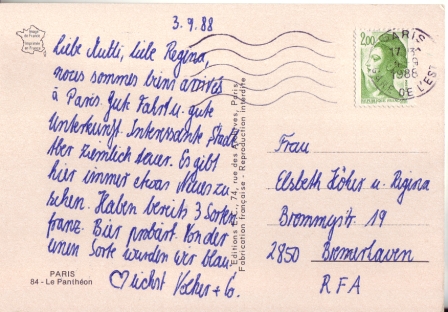 3.9.88
Liebe Mutti, liebe Regina,
nous sommes biens arrivés
à Paris. Gute Fahrt u. gute
Unterkunft. Interessante Stadt
Aber ziemlich teuer. Es gibt
hier immer etwas Neues zu
sehen. Haben bereits 3 Sorten
franz. Bier probiert. Von der
einen Sorte wurden wir blau.
herzlichst Volker + Co.
PARIS
84 - Le Panthéon
Editions 74, rue des Archives, Paris
Fabrication française - Reproduction interdite
2,00
PARIS
1988
DE L'EST
Frau
Elsbeth Höher u. Regina
Brommystr. 19
2850 Bremerhaven
RFA